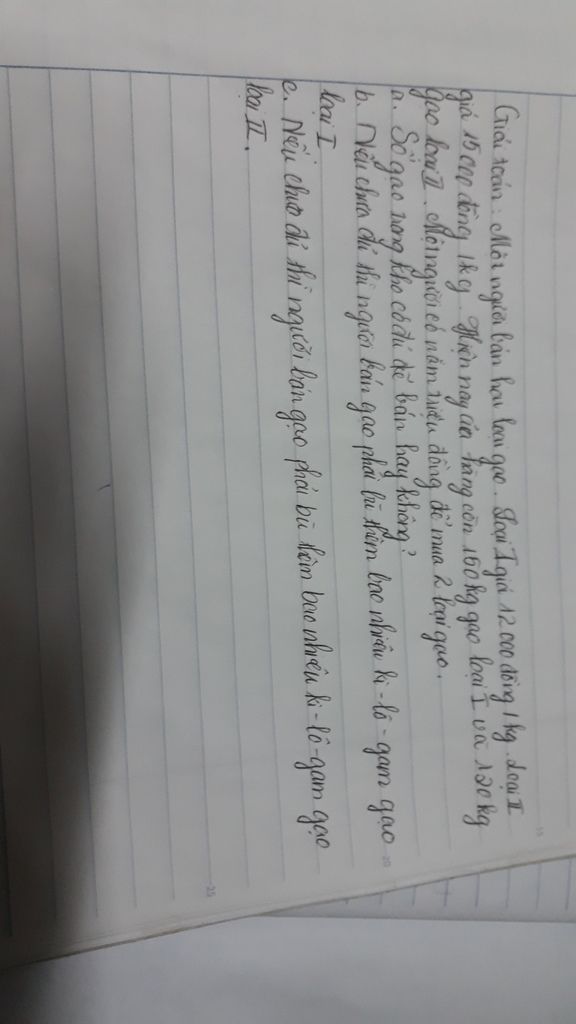 Giải toán: Một người bán hai loại gạo. Loại I giá 12 000 đồng 1 kg. Loại II
giá 15 000 đồng 1kg. Hiện nay cửa hàng còn 160 kg gạo loại I và 120 kg
gạo loại II. Một người có năm triệu đồng để mua 2 loại gạo.
a. Số gạo trong kho có đủ để bán hay không?
b. Nếu chưa đủ thì người bán gạo phải bù thêm bao nhiêu ki-lô-gam gạo
loại I
c. Nếu chưa đủ thì người bán gạo phải bù thêm bao nhiêu ki-lô-gam gạo
loại II.
15
20
25